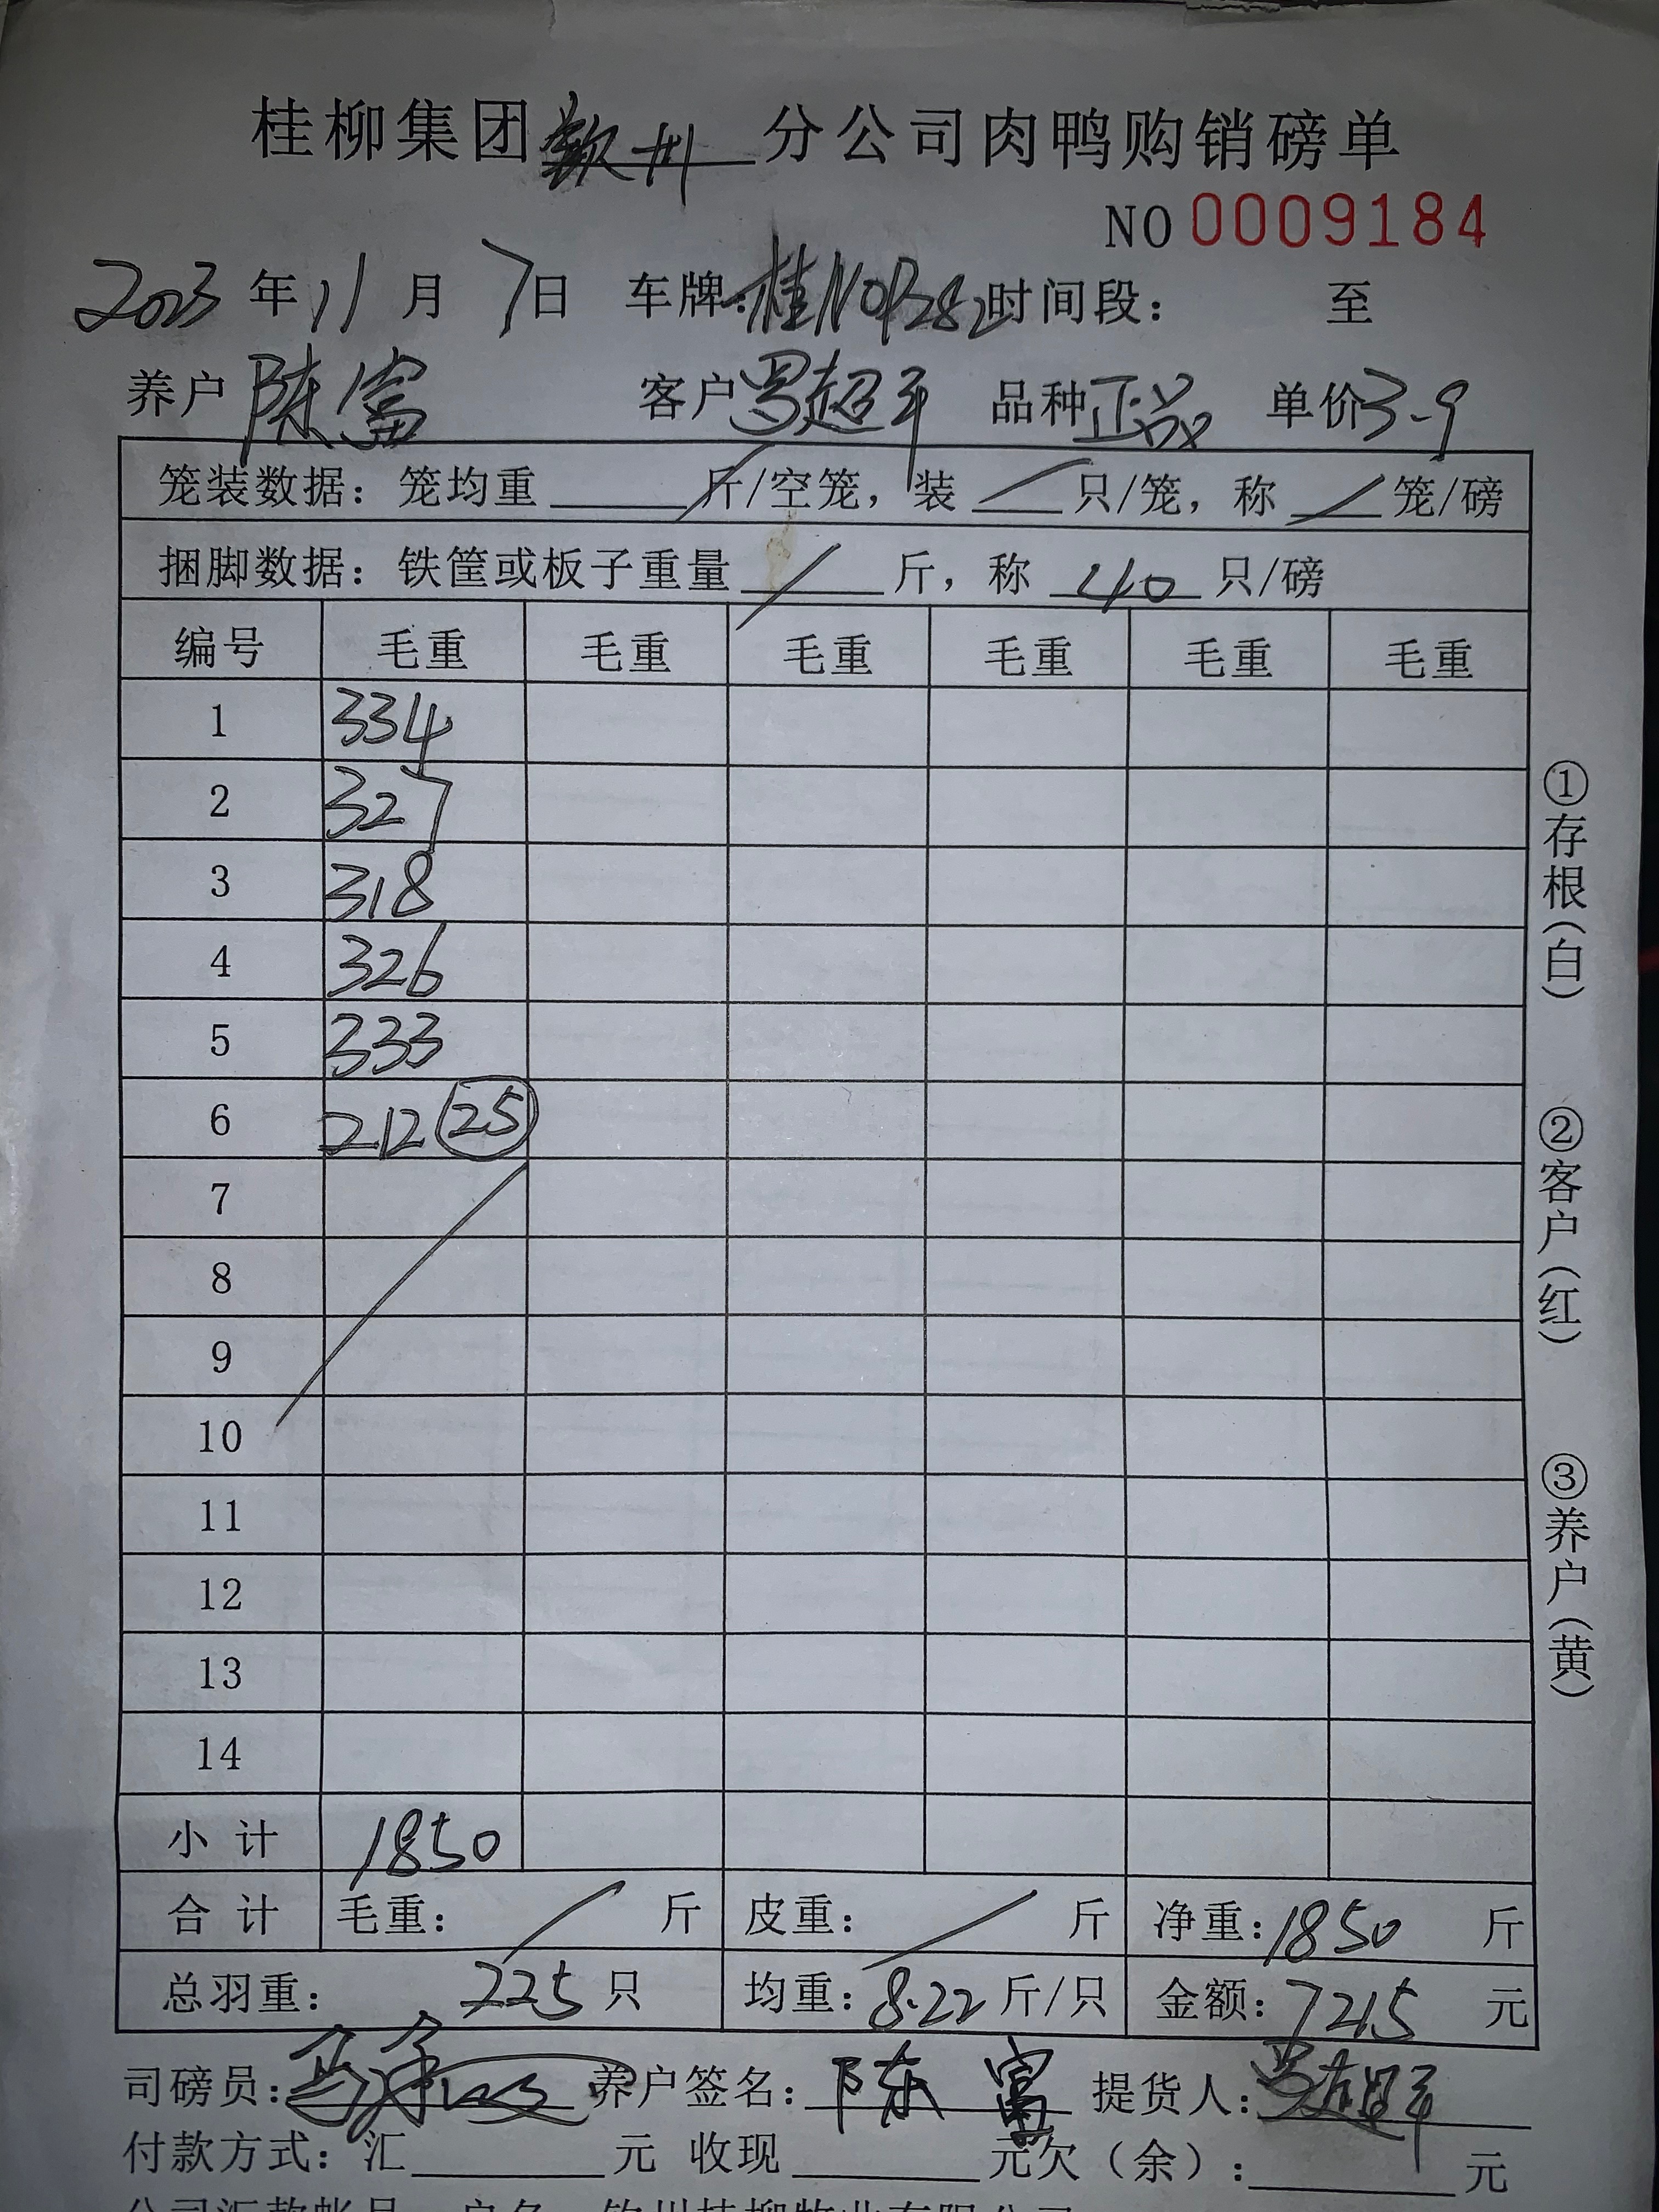 桂柳集团钦州分公司肉鸭购销磅单
NO 0009184
2023年11月7日 车牌:桂N0B282时间段: 至
养户陈富 客户罗超平 品种正成 单价3-9
笼装数据: 笼均重 斤/空笼, 装 只/笼, 称 笼/磅
捆脚数据: 铁筐或板子重量 斤, 称 40 只/磅
编号 毛重 毛重 毛重 毛重 毛重 毛重
1 334
2 327
3 318
4 326
5 333
6 212 25
7
8
9
10
11
12
13
14
小计 1850
合计 毛重: 斤 皮重: 斤 净重:1850 斤
总羽重: 225只 均重:8.22斤/只 金额:7215 元
司磅员: 养户签名:陈富 提货人:罗超平
付款方式: 汇 元 收现 元欠(余): 元
①存根(白)
②客户(红)
③养户(黄)